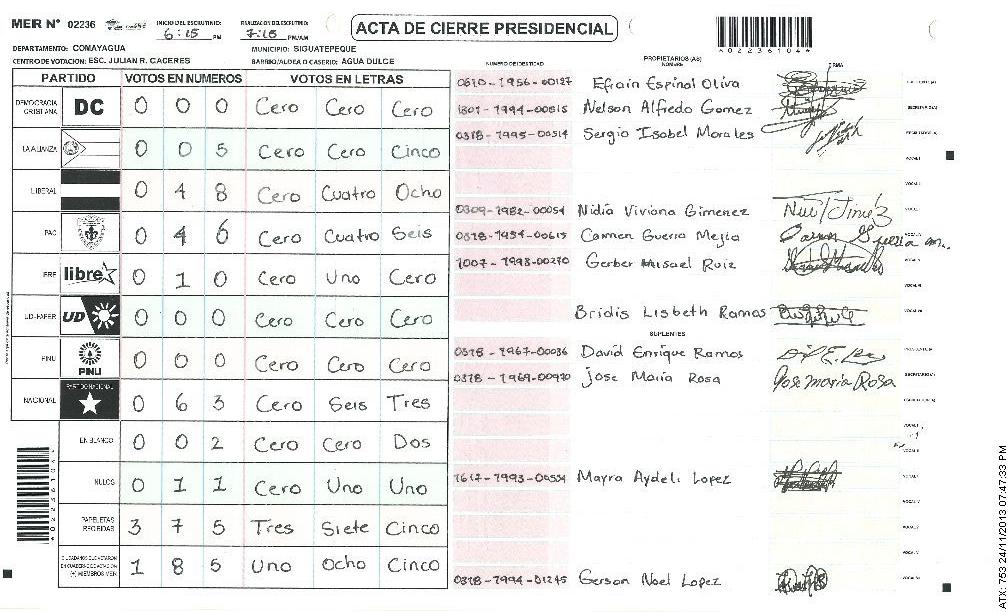 MER N° 02236 INICIO DEL ESCRUTINIO: 6:15 PM FINALIZACION DEL ESCRUTINIO: 7:15 PM/AM ACTA DE CIERRE PRESIDENCIAL
DEPARTAMENTO: COMAYAGUA MUNICIPIO: SIGUATEPEQUE
CENTRO DE VOTACION: ESC. JULIAN R. CACERES BARRIO/ALDEA O CASERIO: AGUA DULCE
4022361044
PARTIDO VOTOS EN NUMEROS VOTOS EN LETRAS
DEMOCRACIA CRISTIANA DC 0 0 0 Cero Cero Cero
LA ALIANZA 0 0 5 Cero Cero Cinco
LIBERAL 0 4 8 Cero Cuatro Ocho
PAC 0 4 6 Cero Cuatro Seis
libre 0 1 0 Cero Uno Cero
UD-FAPER UD 0 0 0 Cero Cero Cero
PINU PINU 0 0 0 Cero Cero Cero
NACIONAL PARTIDO NACIONAL 0 6 3 Cero Seis Tres
EN BLANCO 0 0 2 Cero Cero Dos
NULOS 0 1 1 Cero Uno Uno
PAPELETAS RECIBIDAS 3 7 5 Tres Siete Cinco
CIUDADANOS QUE VOTARON EN CUADERNO DE VOTACION (+) MIEMBROS MER 1 8 5 Uno Ocho Cinco
NUMERO DE IDENTIDAD PROPIETARIOS (AS) NOMBRE FIRMA
Efrain Espinal Oliva
1801-1994-00515 Nelson Alfredo Gomez
0318-1995-00514 Sergio Isabel Morales
0309-1982-00054 Nidia Viviana Gimenez
0318-1954-00615 Carmen Guerra Mejia
1007-1993-00270 Gerber Misael Ruiz
Bridis Lisbeth Ramos
SUPLENTES
0318-1967-00036 David Enrique Ramos
0318-1969-00970 Jose Maria Rosa Jose maria Rosa
Mayra Aydeli Lopez
0318-1994-01245 Gerson Noel Lopez
ATX: 753 24/11/2013 07:47:33 PM